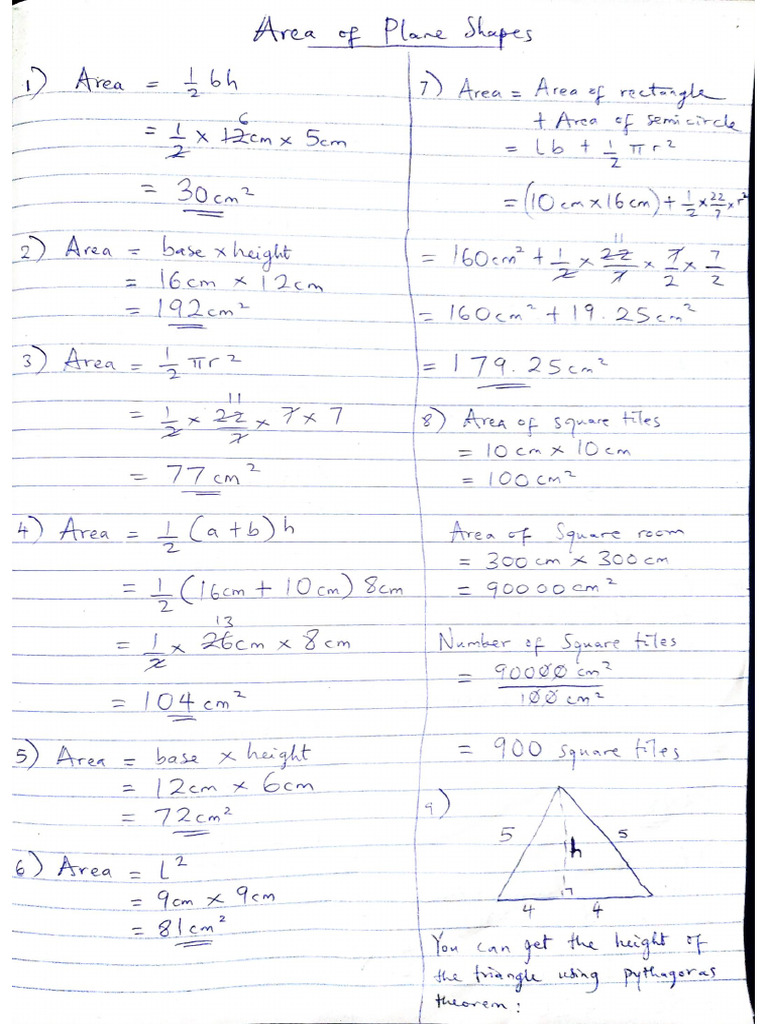 Area of Plane Shapes
1) Area = 1/2 bh
= 1/2 x 12cm x 5cm
6
= 30cm²
2) Area = base x height
= 16cm x 12cm
= 192cm²
3) Area = 1/2 πr²
11
= 1/2 x 22/7 x 7 x 7
= 77cm²
4) Area = 1/2 (a + b) h
= 1/2 (16cm + 10cm) 8cm
13
= 1/2 x 26cm x 8cm
= 104cm²
5) Area = base x height
= 12cm x 6cm
= 72cm²
6) Area = L²
= 9cm x 9cm
= 81cm²
7) Area = Area of rectangle
+ Area of semicircle
= Lb + 1/2 πr²
= (10cm x 16cm) + 1/2 x 22/7 x r²
11
= 160cm² + 1/2 x 22/7 x 7/2 x 7/2
= 160cm² + 19.25cm²
= 179.25cm²
8) Area of square tiles
= 10cm x 10cm
= 100cm²
Area of Square room
= 300cm x 300cm
= 90000cm²
Number of Square tiles
= 90000cm²/100cm²
= 900 square tiles
9)
5 h 5
4 4
You can get the height of
the triangle using pythagoras
theorem: